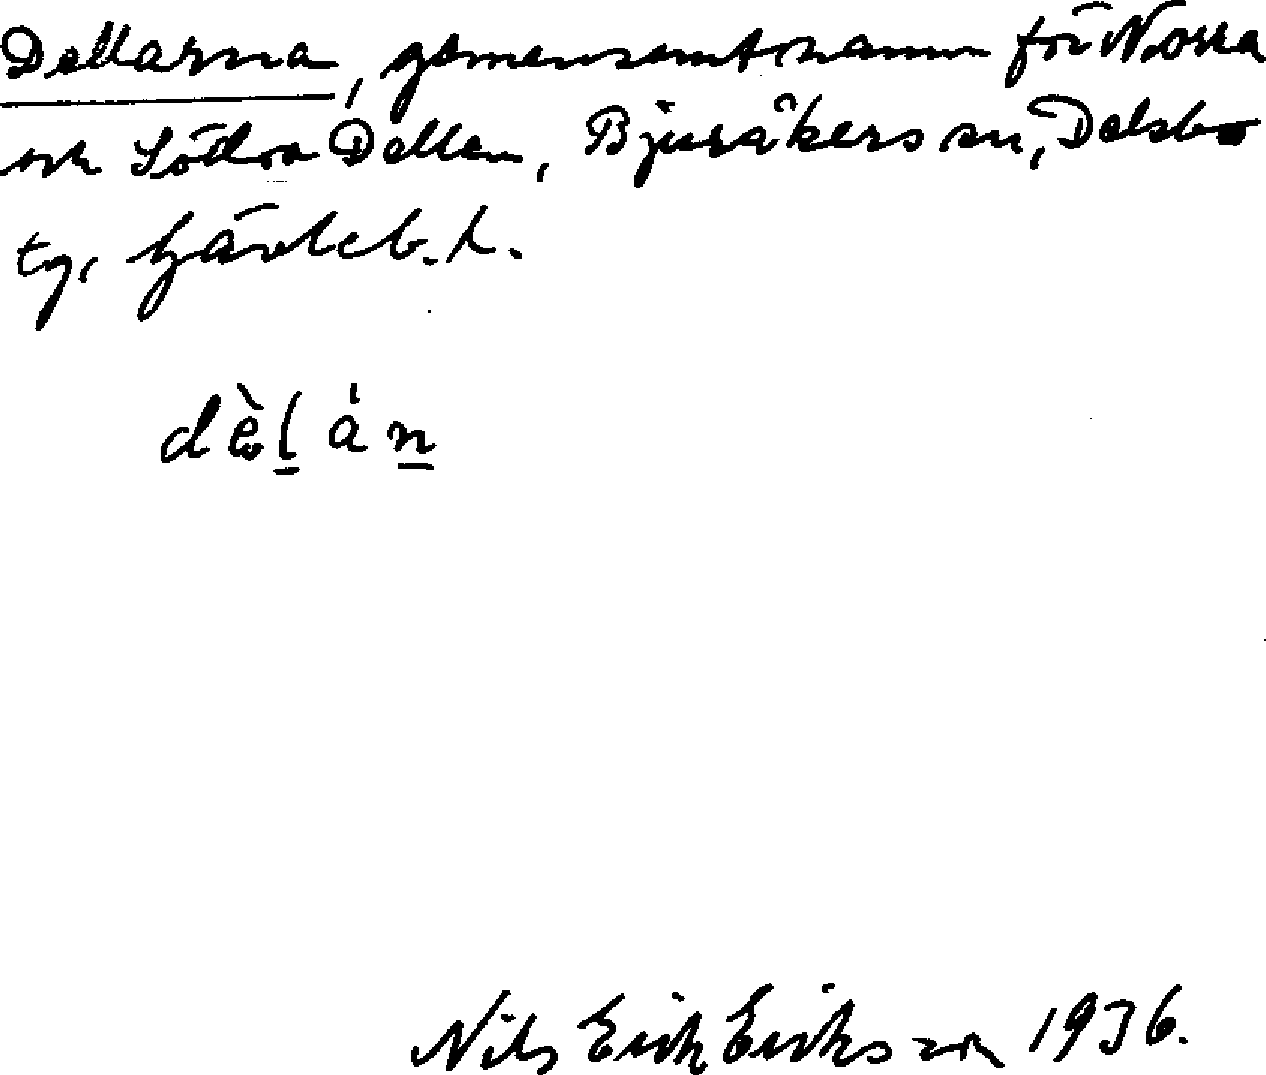 Dellarna, gemensamt namn för Norra
och Södra Dellen, Bjuråkers sn, Delsbo
tg, Gävleb. l.
dèl àn
Nils Erik Eriksson 1936.